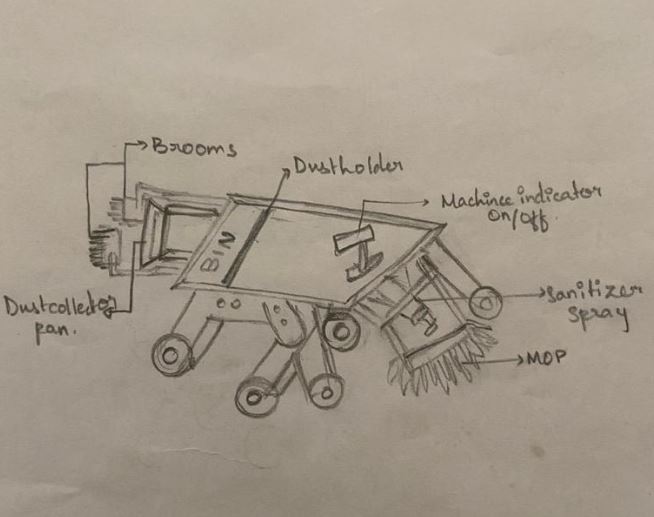 Brooms
Dustholder
Machince indicator
on/off.
BIN
Dustcollectog
pan.
Sanitizer
spray
MOP